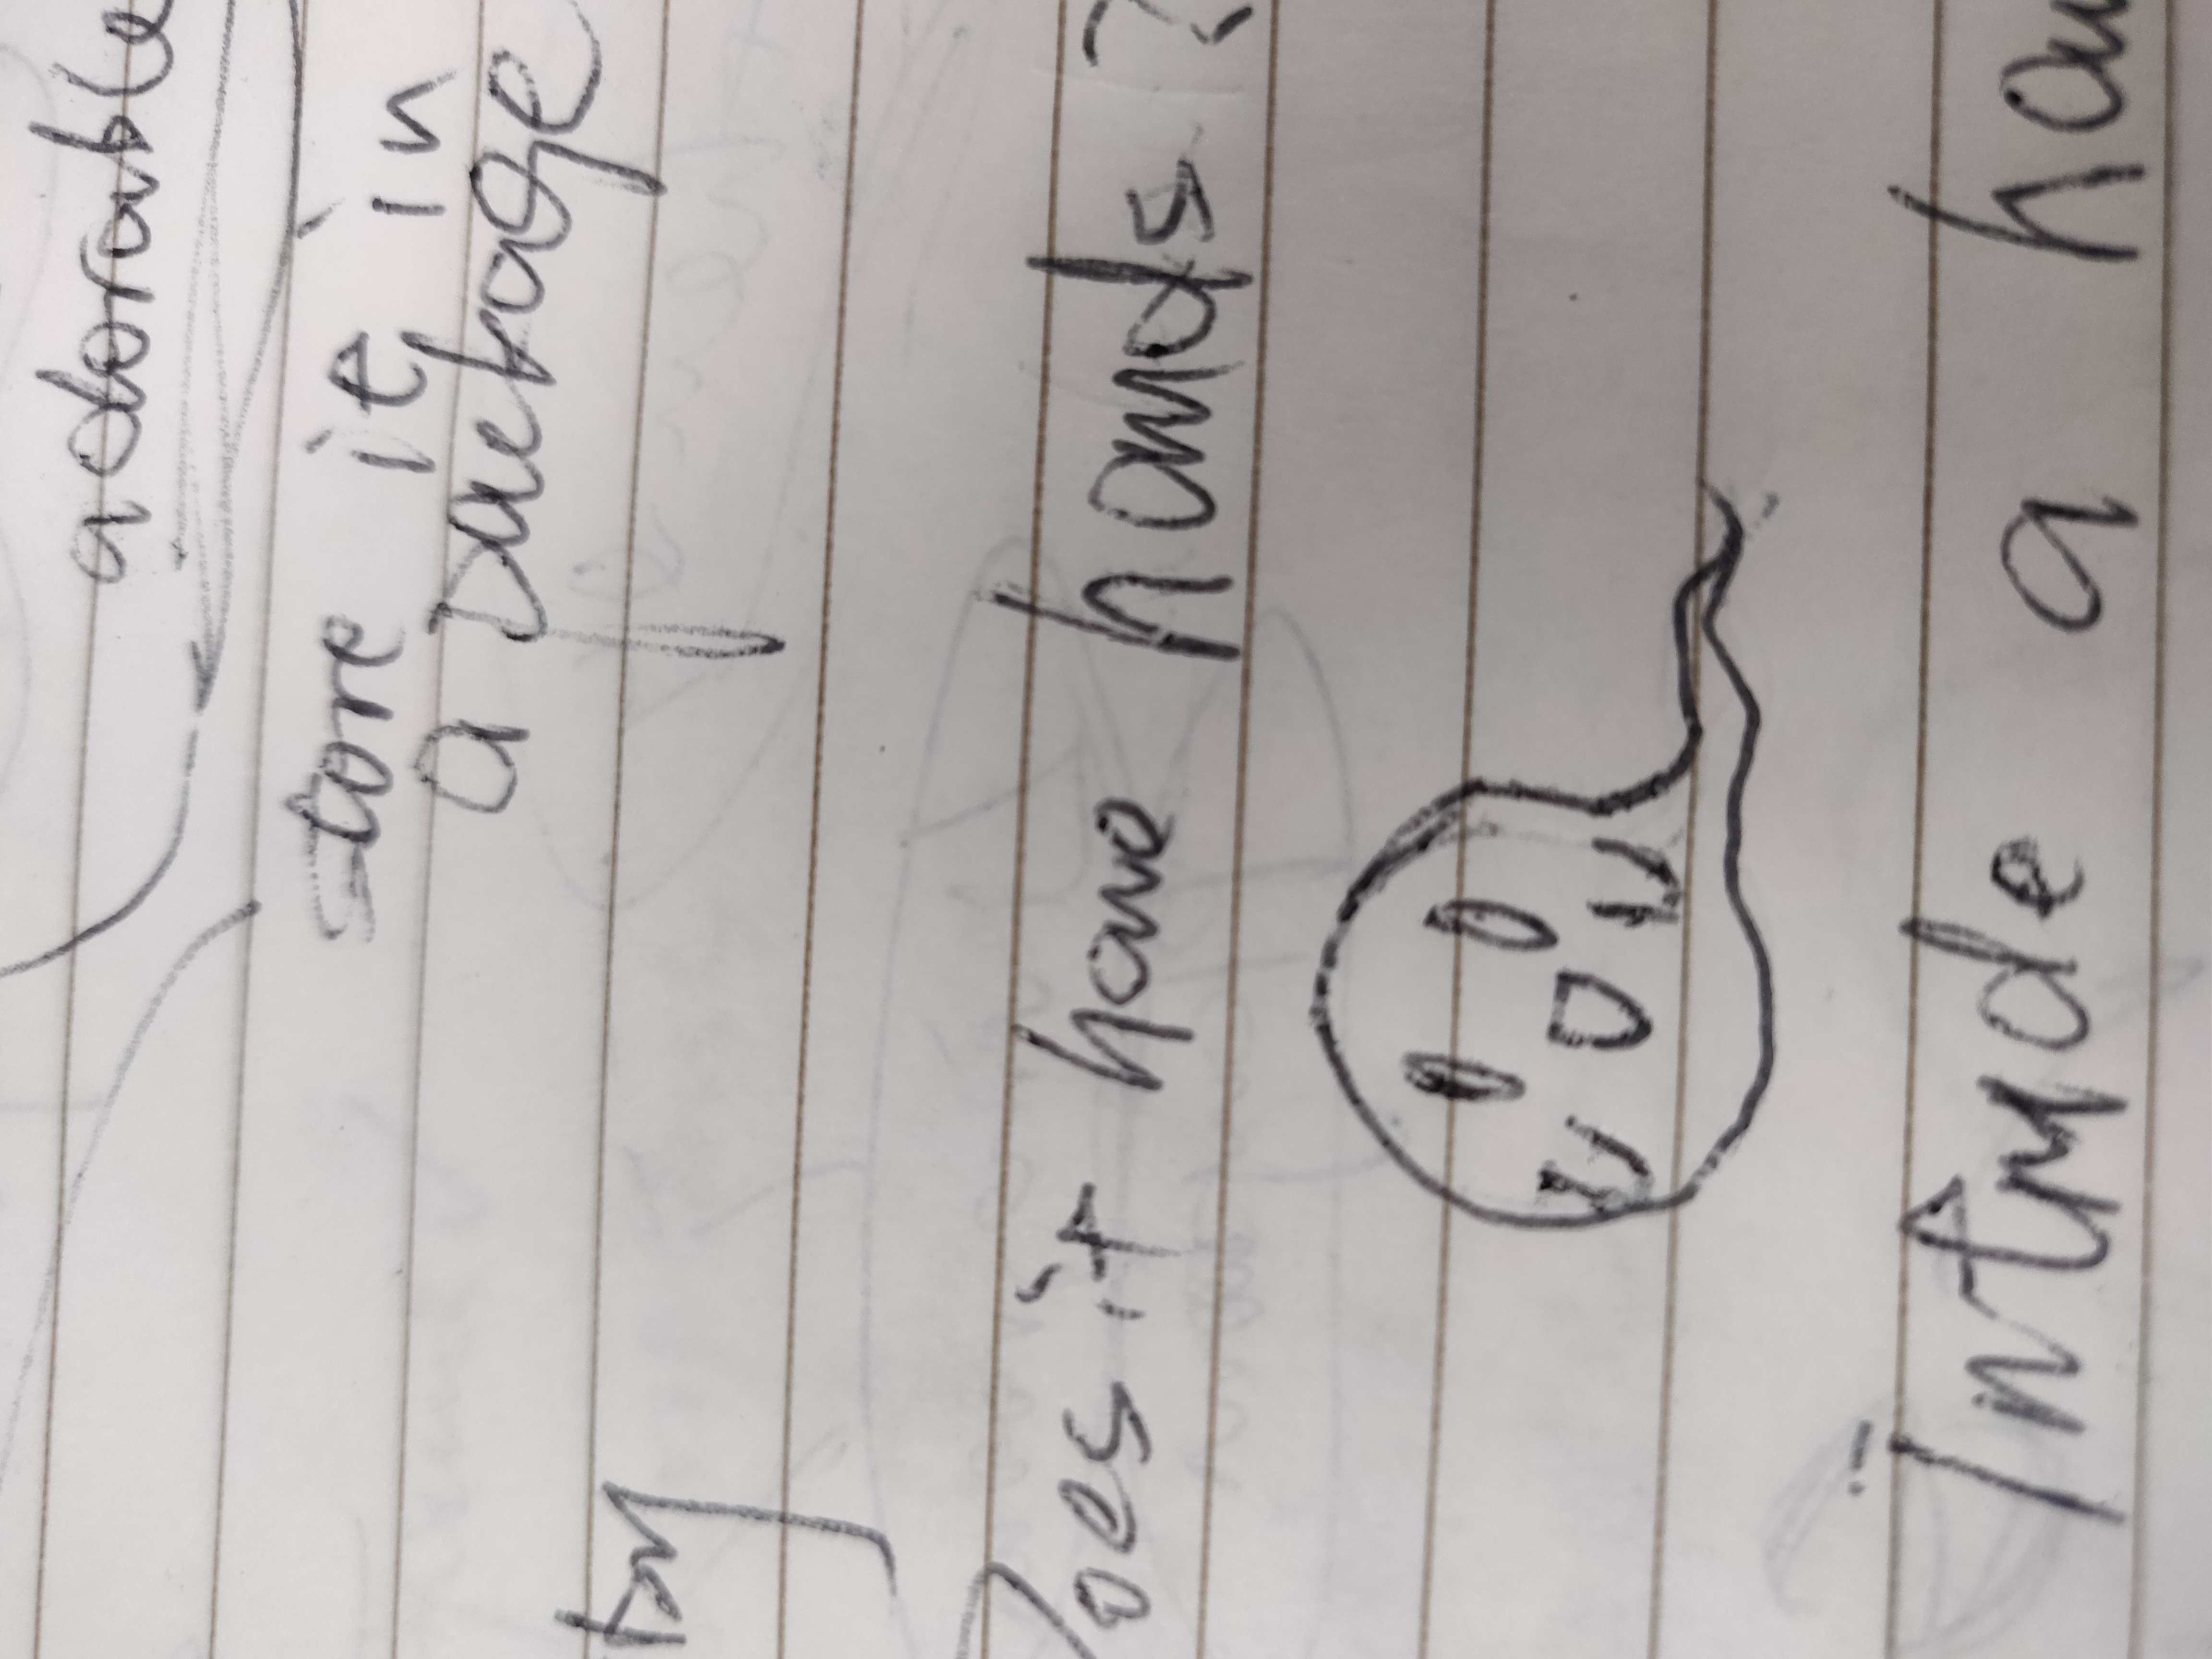 adorable
store it in
a package
by
Does it have hands?
Intrude a